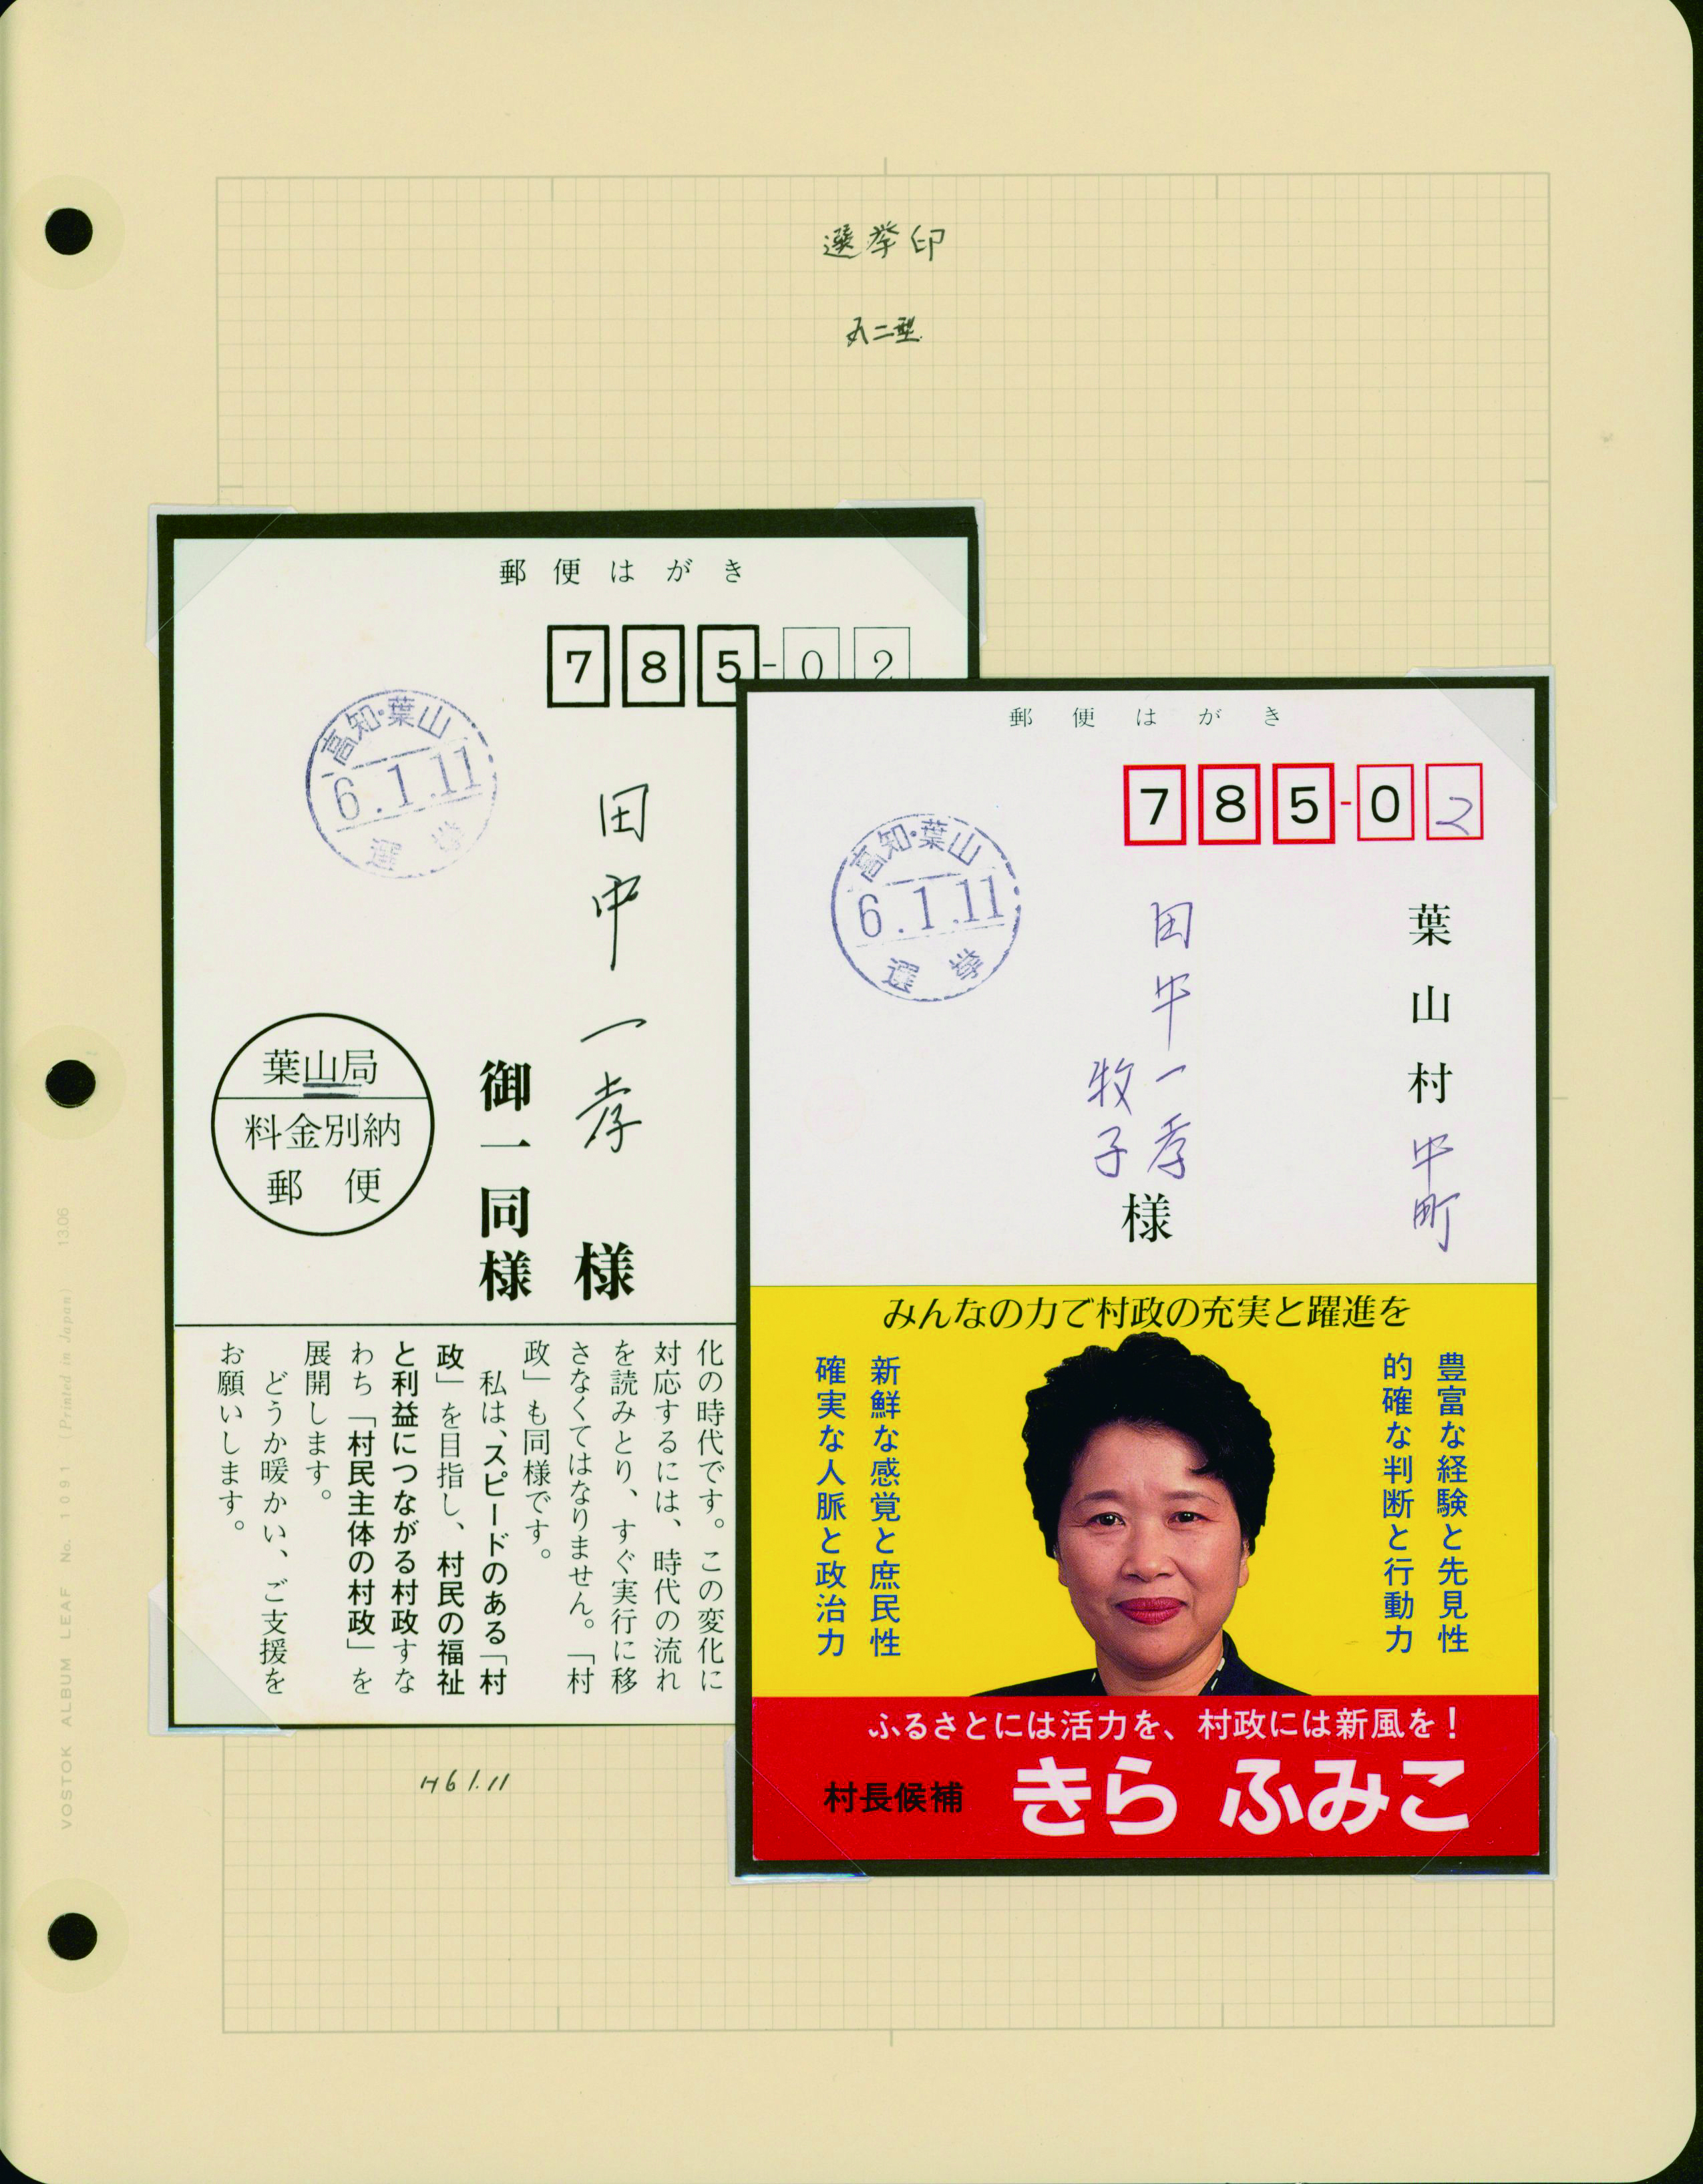 選挙印
丸二型
郵便はがき
785-02
高知・葉山
6.1.11
選挙
田中一孝 様
御一同様
葉山局
料金別納
郵便
化の時代です。この変化に
対応するには、時代の流れ
を読みとり、すぐ実行に移
さなくてはなりません。「村
政」も同様です。
私は、スピードのある「村
政」を目指し、村民の福祉
と利益につながる村政すな
わち「村民主体の村政」を
展開します。
どうか暖かい、ご支援を
お願いします。
郵便はがき
785-02
高知・葉山
6.1.11
選挙
葉山村中町
田中一孝
牧子
様
みんなの力で村政の充実と躍進を
豊富な経験と先見性
的確な判断と行動力
新鮮な感覚と庶民性
確実な人脈と政治力
ふるさとには活力を、村政には新風を!
村長候補 きら ふみこ
H6 1.11
VOSTOK ALBUM LEAF No. 1091 (Printed in Japan) 13.06